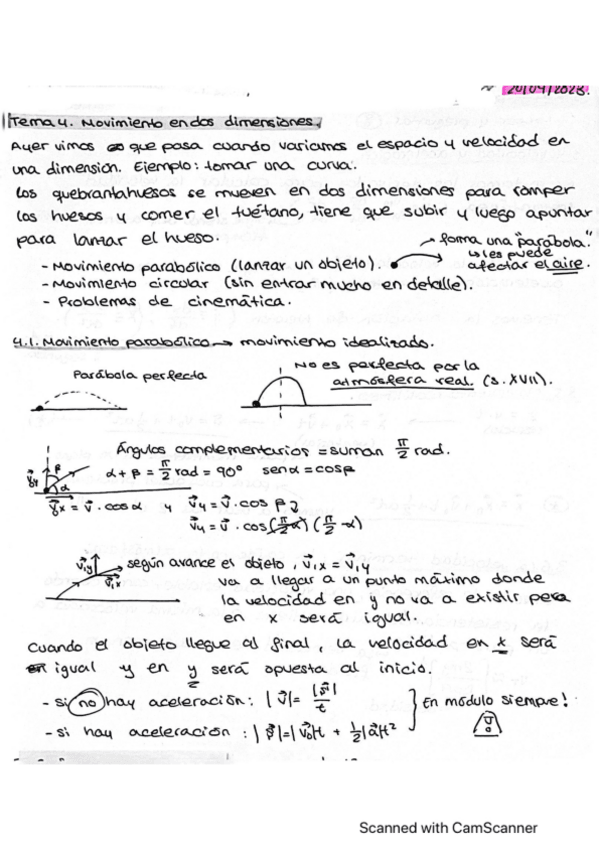 20/04/2023.
Tema 4. Movimiento en dos dimensiones.
Ayer vimos que pasa cuando variamos el espacio y velocidad en
una dimensión. Ejemplo: tomar una curva.
Los quebrantahuesos se mueven en dos dimensiones para romper
los huesos y comer el tuétano, tiene que subir y luego apuntar
para lanzar el hueso.
forma una "parábola."
- Movimiento parabólico (lanzar un objeto).
les puede
afectar el aire.
- Movimiento circular (sin entrar mucho en detalle).
- Problemas de cinemática.
4.1. Movimiento parabólico → movimiento idealizado.
Parábola perfecta
No es perfecta por la
atmósfera real. (s. XVII).
Ángulos complementarios = suman π/2 rad.
α + β = π/2 rad = 90° senα = cosβ
β
α
vx = v⃗ · cosα y v⃗y = v⃗ · cos β
v⃗y = v⃗ · cos(π/2-α) (π/2 - α)
v⃗1y
v⃗1x
según avance el objeto, v⃗1x = v⃗1y
va a llegar a un punto máximo donde
la velocidad en y no va a existir pero
en x será igual.
Cuando el objeto llegue al final, la velocidad en x será
igual y en y será opuesta al inicio.
- si no hay aceleración: |v⃗| = |s⃗|/t
En módulo siempre!
- si hay aceleración: |s⃗|=|v⃗0|t + 1/2|a⃗|t²
Scanned with CamScanner